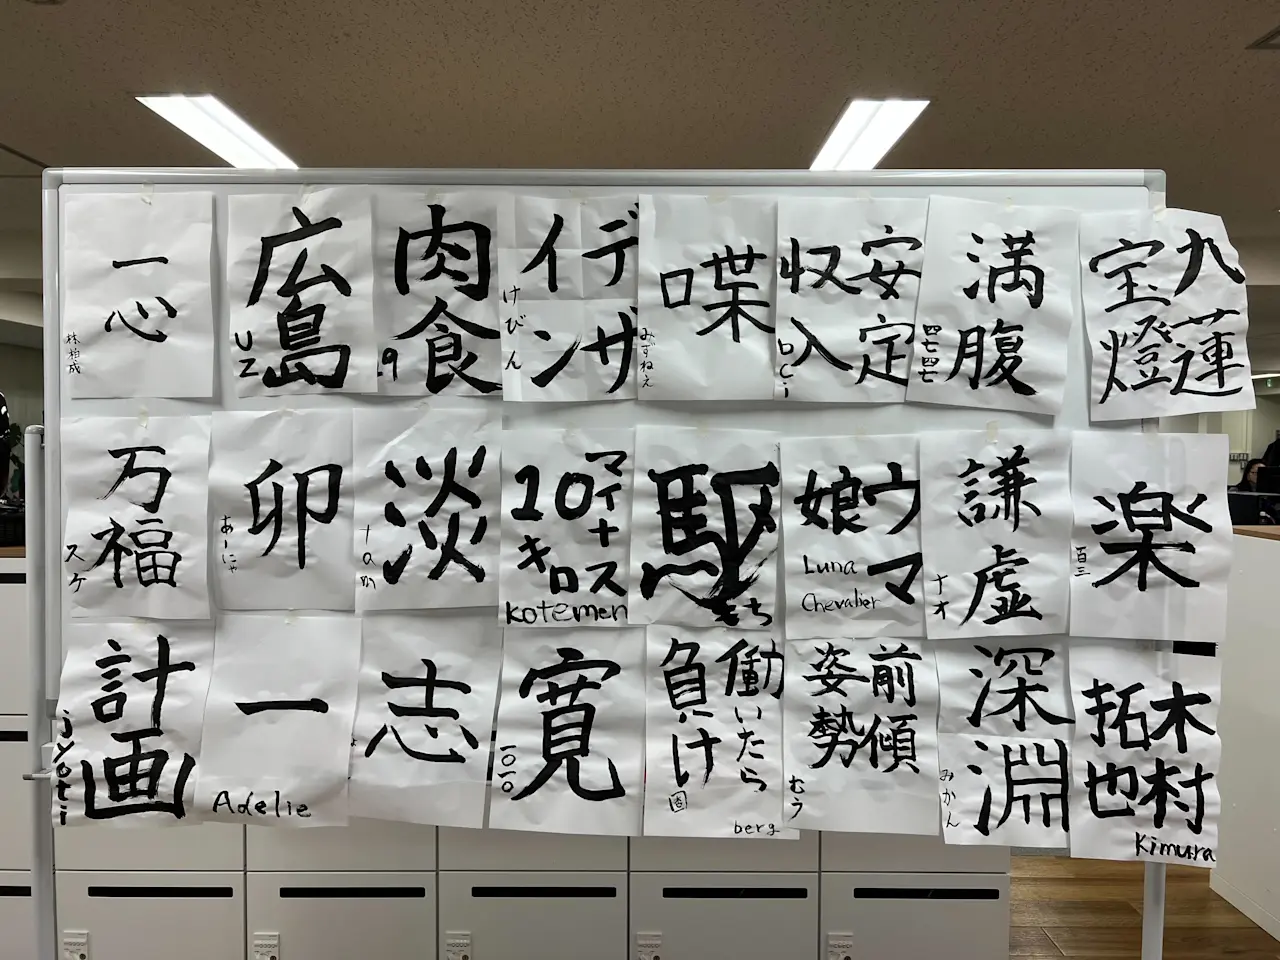 一心
林柏成
広島
UZ
肉食
.9
デザ
イン
けびん
喋
みずねえ
安定
収入
DCi
満腹
四七四七
九蓮
宝燈
万福
スケ
卯
あーにゃ
淡
ナロか
マイナス
10キロ
kotemen
駆
もち
ウマ
娘
Luna
Chevalier
謙虚
ナオ
楽
百三
計画
jyoti
一
Adelie
志
寛
一〇一〇
働いたら
負け
berg
前傾
姿勢
むう
深淵
みかん
木村
拓也
Kimura